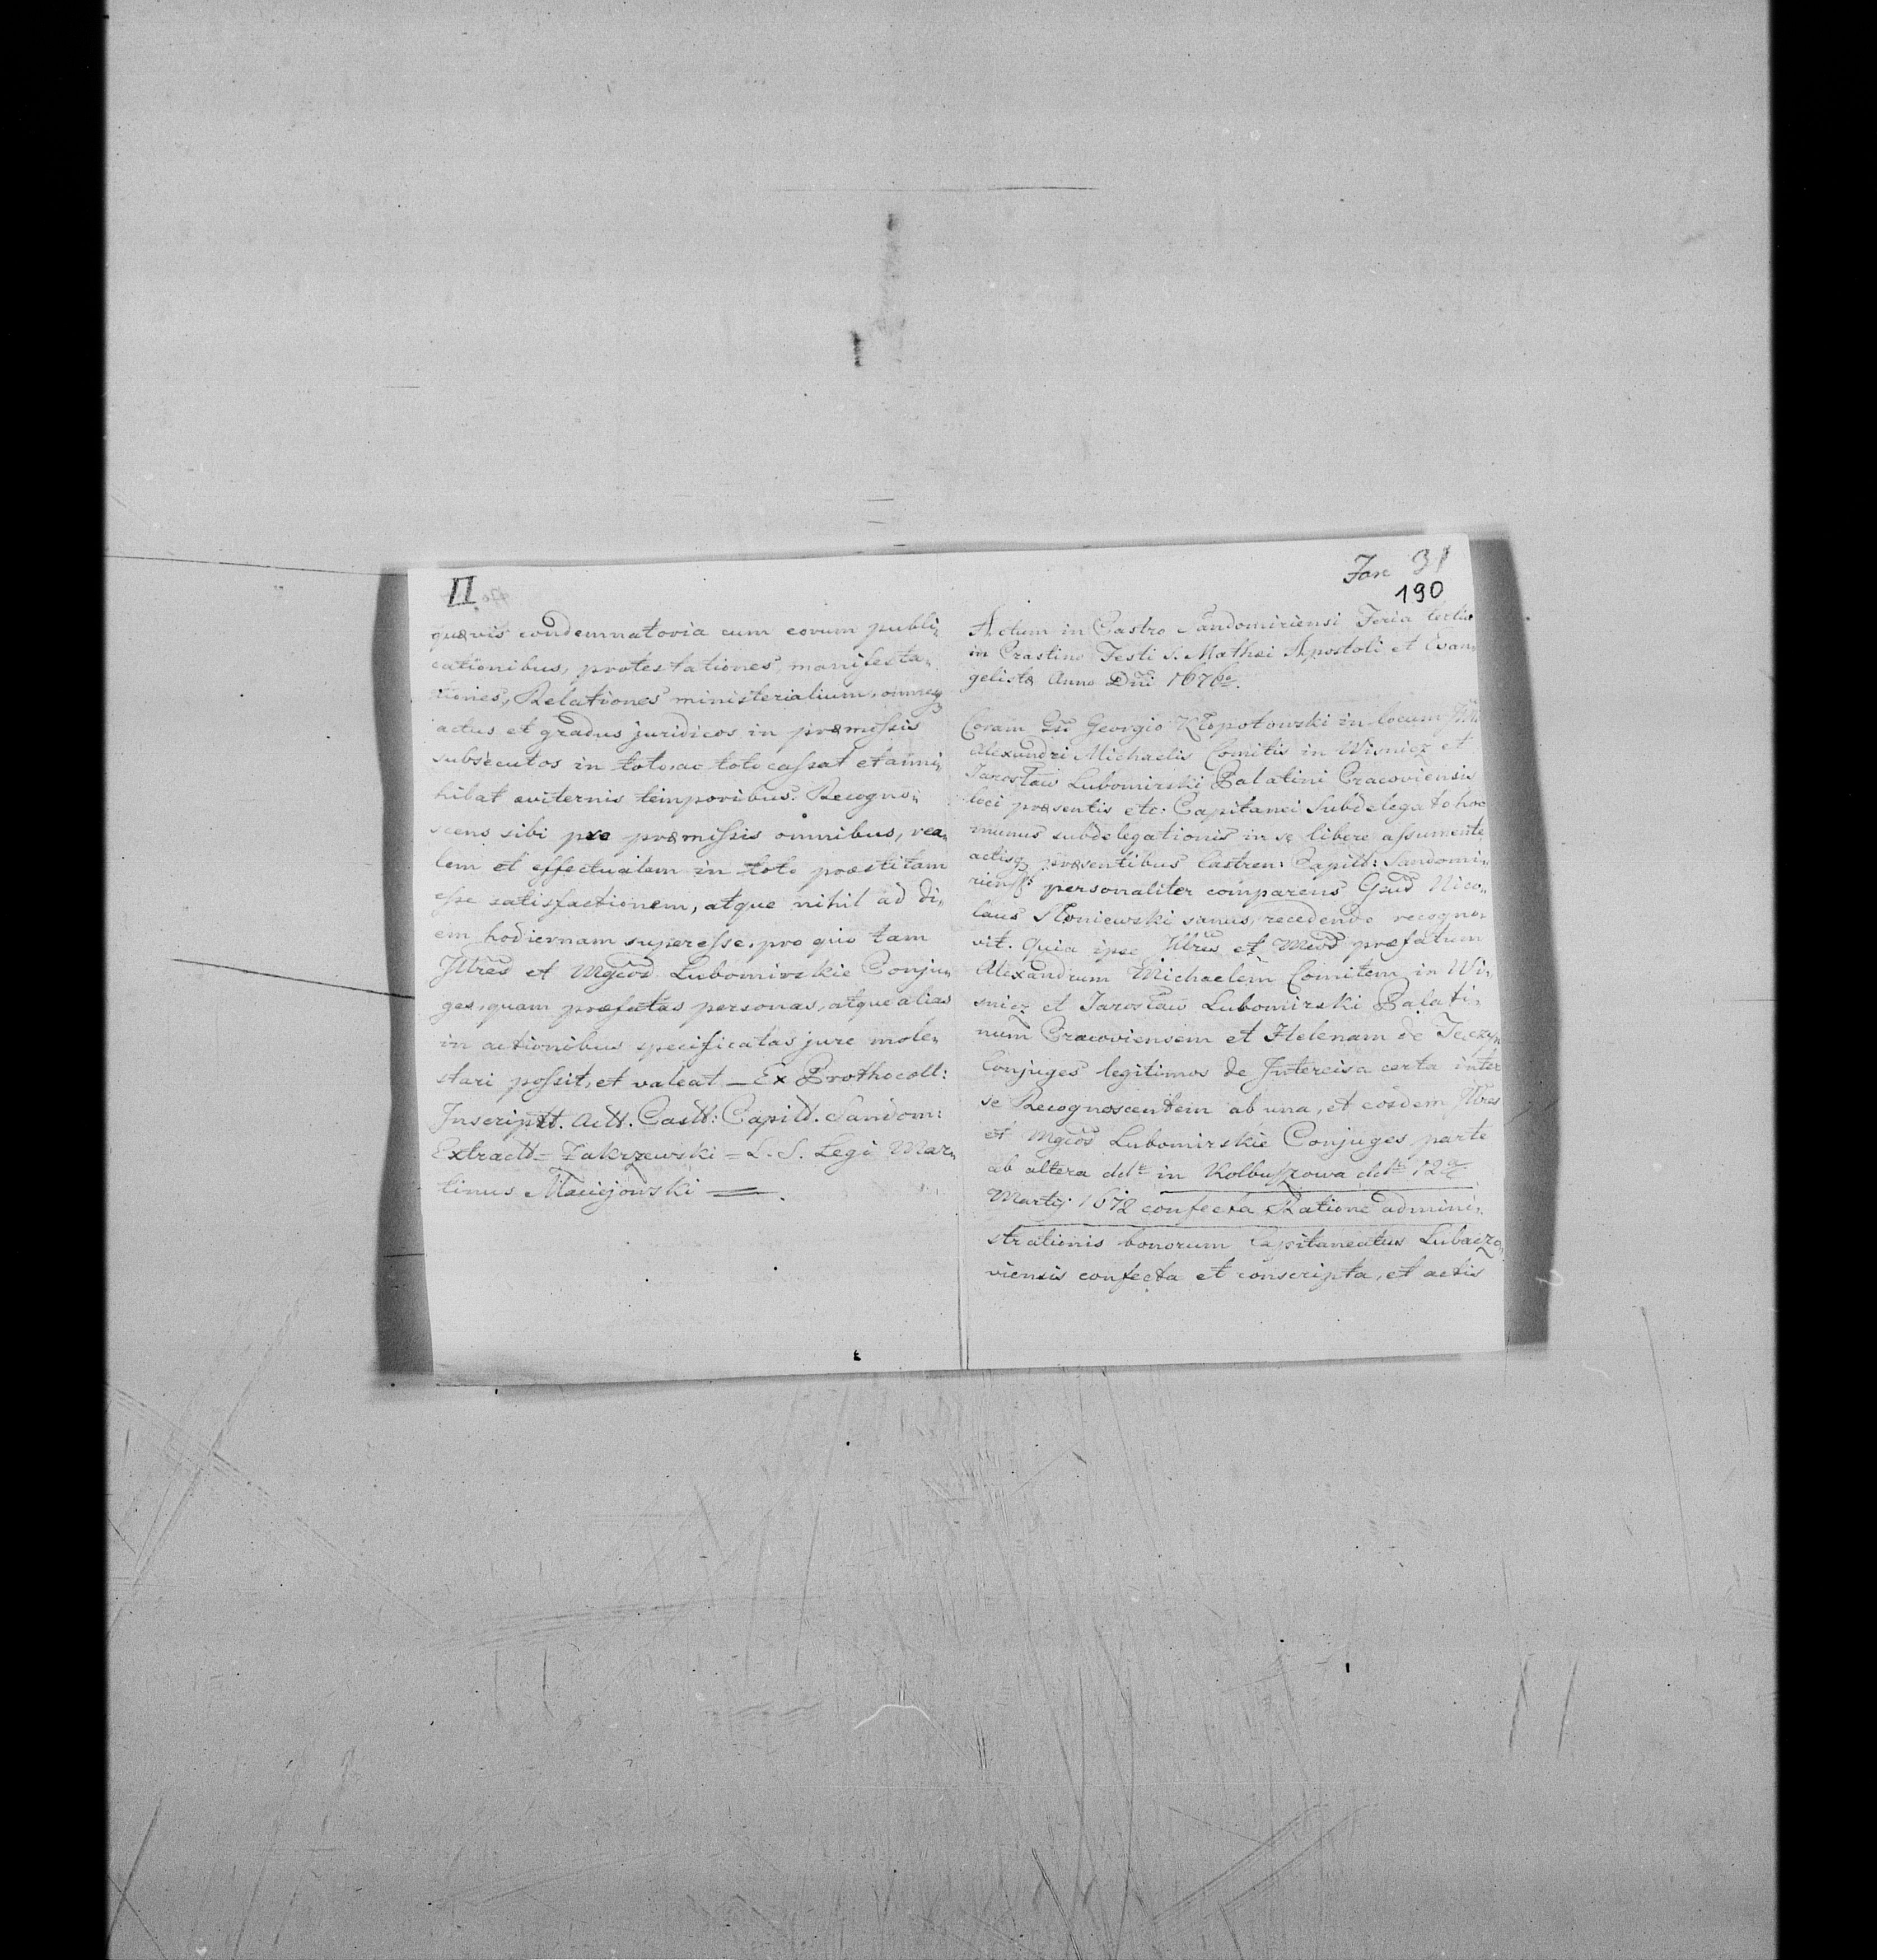 II
quævis condemnatoria cum eorum publi„
cationibus, protestationes, manifesta„
tiones, Relationes ministerialium, omnesq
actus et gradus juridicos in præmissis
subsecutos in toto, ac toto cassat et anni„
hilat æviternis temporibus. Recogno„
scens sibi pro præmissis omnibus, rea„
lem et effectualem in toto præstitam
esse satisfactionem, atque nihil ad di„
em hodiernam superesse, pro quo tam
Jllres et Mgcos Lubomirskie Conju„
ges, quam præfatas personas, atque alias
in actionibus specificatas jure mole„
stari possit, et valeat — Ex Prothocoll:
Inscriptt. Actt. Castt: Capitt. Sandom:
Extractt = Zakrzewski = L. S. Legi Mar„
tinus Maciejowski =.
Fasc 31
190
Actum in Castro Sandomiriensi Feria tertia
in Crastino Festi S. Mathæi Apostoli et Evan„
gelistæ Anno Dni 1676to.
Coram Georgio Kłopotowski in locum
Alexandri Michaelis Comitis in Wisnicz et
Jarosław Lubomirski Palatini Cracoviensis
loci præsentis etc: Capitanei Subdelegato hoc
munus subdelegationis in se libere assumente
actisq præsentibus Castren: Capitt: Sandomi„
rienss personaliter comparens Gsus Nico„
laus Słoniewski sanus, recedendo recogno„
vit. Quia ipse Jllres et Mcos præfatum
Alexandrum Michaelem Comitem in Wi„
snicz et Jarosław Lubomirski Palati„
num Cracoviensem et Helenam de Tęczyn
Conjuges legitimos de Intercisa certa inter
se Recognoscentem ab una, et eosdem Jllres
et Mgcos Lubomirskie Conjuges parte
ab altera ddto in Kolbuszowa ddto 12a
Martij 1672 confecta Ratione admini„
strationis bonorum Capitaneatus Lubaczo„
viensis confecta et conscripta, et actis